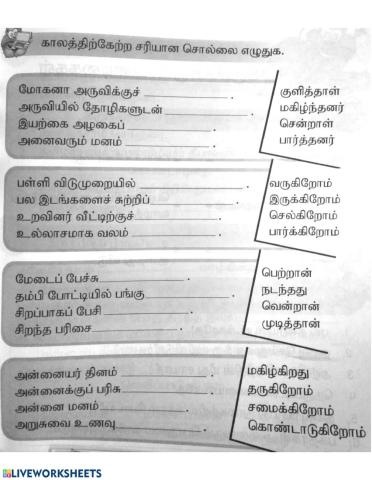 காலத்திற்கேற்ற சரியான சொல்லை எழுதுக.
மோகனா அருவிக்குச் ____________ . குளித்தாள்
அருவியில் தோழிகளுடன் ____________ . மகிழ்ந்தனர்
இயற்கை அழகைப் ____________ . சென்றாள்
அனைவரும் மனம் ____________ . பார்த்தனர்
பள்ளி விடுமுறையில் ____________ . வருகிறோம்
பல இடங்களைச் சுற்றிப் ____________ . இருக்கிறோம்
உறவினர் வீட்டிற்குச் ____________ . செல்கிறோம்
உல்லாசமாக வலம் ____________ . பார்க்கிறோம்
மேடைப் பேச்சு ____________ . பெற்றான்
தம்பி போட்டியில் பங்கு ____________ . நடந்தது
சிறப்பாகப் பேசி ____________ . வென்றான்
சிறந்த பரிசை ____________ . முடித்தான்
அன்னையர் தினம் ____________ . மகிழ்கிறது
அன்னைக்குப் பரிசு ____________ . தருகிறோம்
அன்னை மனம் ____________ . சமைக்கிறோம்
அறுசுவை உணவு ____________ . கொண்டாடுகிறோம்
LIVEWORKSHEETS